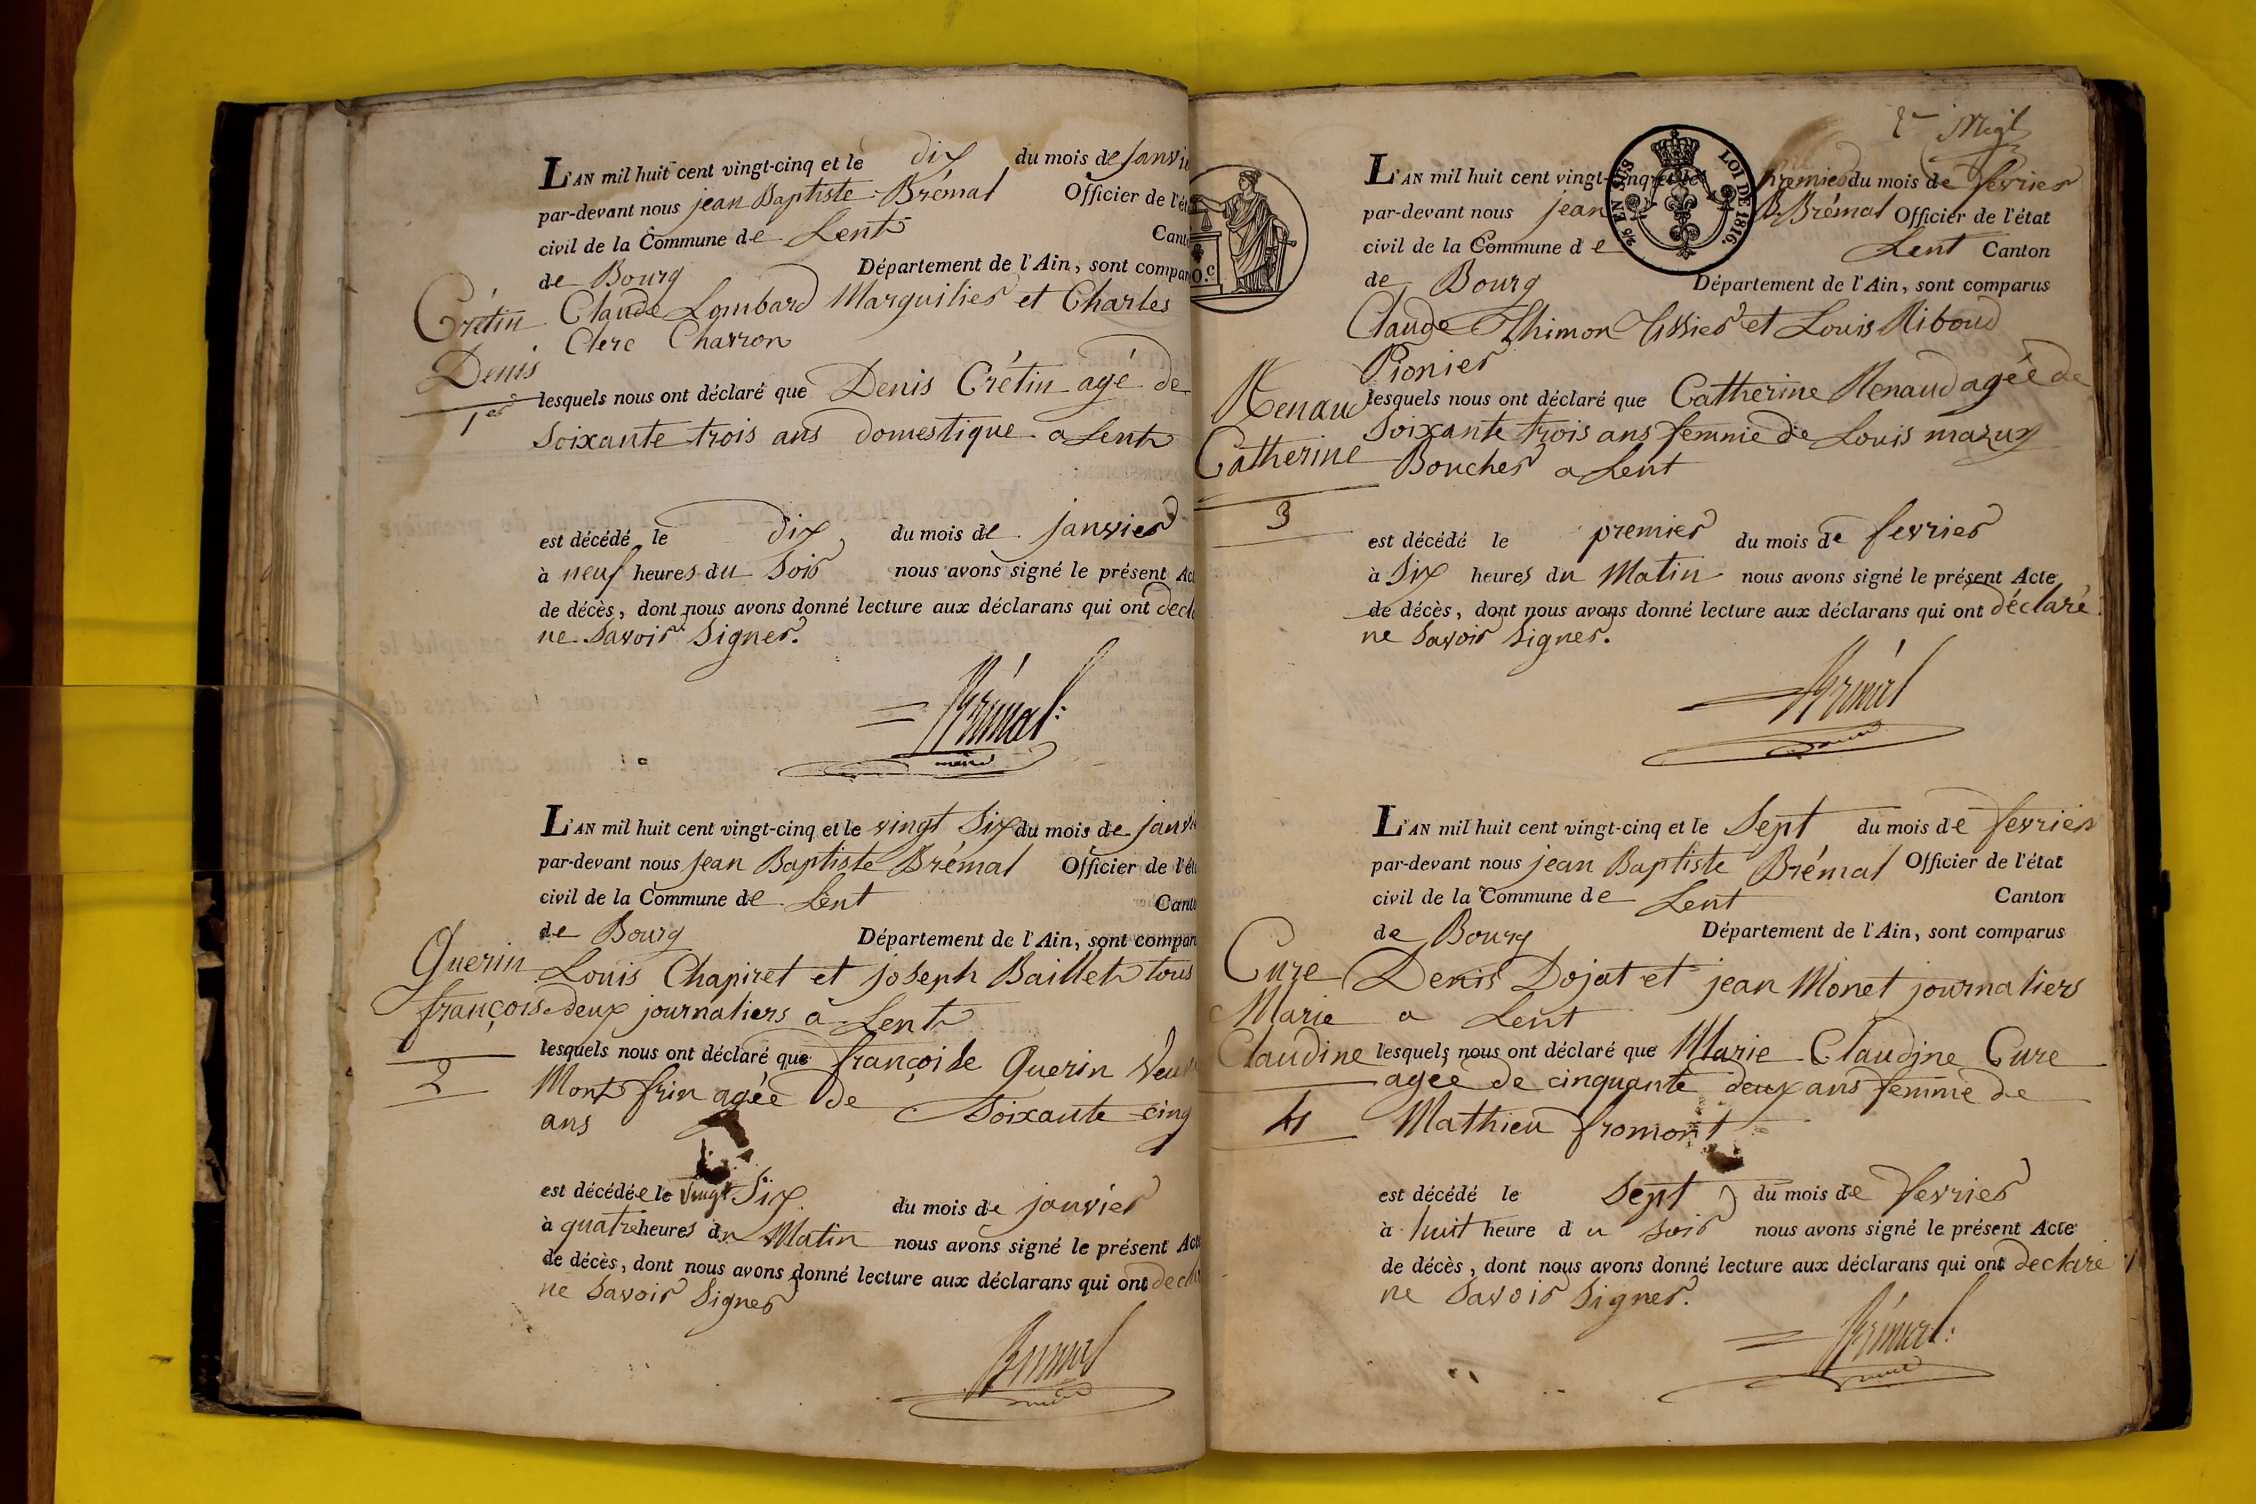 L'AN mil huit cent vingt-cinq et le dix du mois de janvie
par-devant nous jean Baptiste Brémal Officier de l'ét
civil de la Commune de Lent Cant
de Bourg Département de l'Ain, sont compar
Crétin Claude Lombard Marguilier et Charles
Clerc Charron
Denis
lesquels nous ont déclaré que Denis Crétin agé de
1er
Soixante trois ans domestique a Lent
est décédé le dix du mois de janvier
à neuf heures du Soir nous avons signé le présent Act
de décès, dont nous avons donné lecture aux déclarans qui ont decla
ne Savoir Signer.
Brémal
maire
L'AN mil huit cent vingt-cinq et le vingt Six du mois de janvi
par-devant nous jean Baptiste Brémal Officier de l'ét
civil de la Commune de Lent Canto
de Bourg Département de l'Ain, sont compar
Querin Louis Chapiret et joseph Baillet tous
françoise deux journaliers a Lent
lesquels nous ont déclaré que françoise Querin Veuve
2
Montfrin agée de Soixante cinq
ans
est décédée le Vingt Six du mois de janvier
à quatre heures du Matin nous avons signé le présent Acte
de décès, dont nous avons donné lecture aux déclarans qui ont decla
ne Savoir Signer
Brémal
maire
2e
L'AN mil huit cent vingt-cinq et le premier du mois de fevrier
par-devant nous jean B. Brémal Officier de l'état
civil de la Commune de Lent Canton
de Bourg Département de l'Ain, sont comparus
2/5 EN SUS
LOI DE 1816.
Claude Thimon tissier et Louis Riboud
Pionier
Renaud lesquels nous ont déclaré que Catherine Renaud agée de
Soixante trois ans femme de Louis mazuy
Catherine Boucher a Lent
3
est décédé le premier du mois de fevrier
à Six heures du Matin nous avons signé le présent Acte
de décès, dont nous avons donné lecture aux déclarans qui ont déclaré
ne Savoir Signer.
Brémal
maire
L'AN mil huit cent vingt-cinq et le Sept du mois de fevrier
par-devant nous jean Baptiste Brémal Officier de l'état
civil de la Commune de Lent Canton
de Bourg Département de l'Ain, sont comparus
Cure Denis Dojat et jean Monet journaliers
Marie a Lent
Claudine lesquels nous ont déclaré que Marie Claudine Cure
agée de cinquante deux ans femme de
4 Mathieu fromont
est décédé le Sept du mois de fevrier
à huit heure du Soir nous avons signé le présent Acte
de décès, dont nous avons donné lecture aux déclarans qui ont declaré
ne Savoir Signer.
Brémal
maire